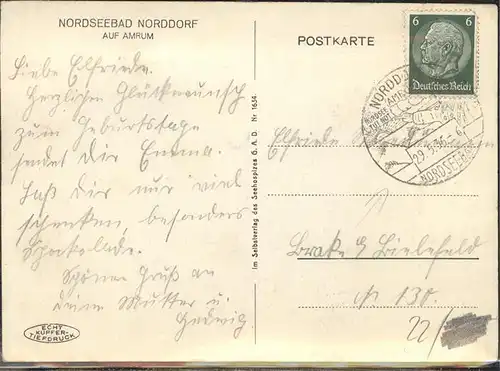 NORDSEEBAD NORDDORF
AUF AMRUM
Liebe Elfriede.
Herzlichen Glückwunsch
zum Geburtstage
sendet dir Emma.
Laß dir nur viel
schenken, besonders
Schokolade.
Schönen Gruß an
deine Mutter u.
Hedwig
ECHT
KUPFER-
TIEFDRUCK
Im Selbstverlag des Seehospizes G. A. D. Nr. 1634
POSTKARTE
6 6
Deutsches Reich
NORDD
AMR
29.6.36
NORDSEEBAD
Elfriede
Brake b/ Bielefeld
No 130.
22/